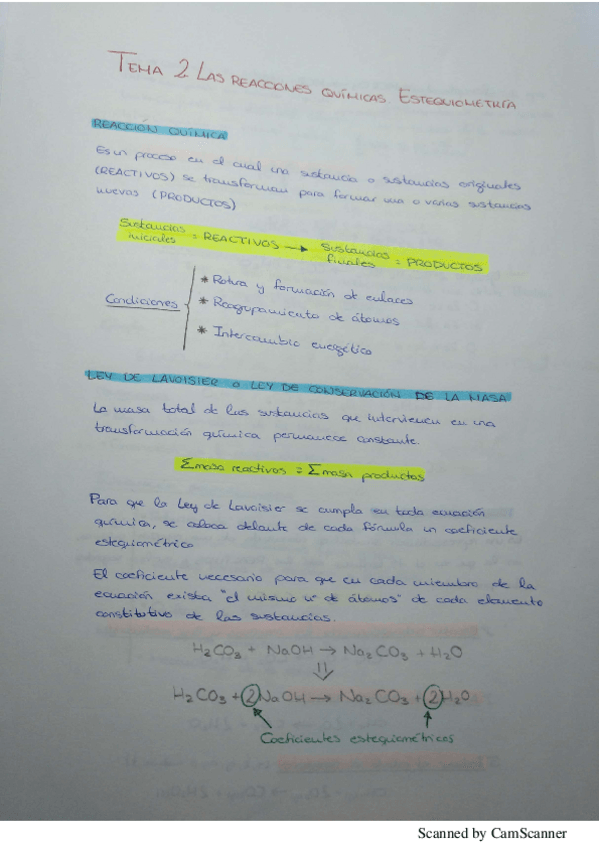 TEMA 2 LAS REACCIONES QUÍMICAS. ESTEQUIOMETRÍA
REACCIÓN QUÍMICA
Es un proceso en el cual una sustancia o sustancias originales
(REACTIVOS) se transforman para formar una o varias sustancias
nuevas (PRODUCTOS)
Sustancias iniciales = REACTIVOS → Sustancias finales = PRODUCTOS
Condiciones
* Rotura y formación de enlaces
* Reagrupamiento de átomos
* Intercambio energético
LEY DE LAVOISIER o LEY DE CONSERVACIÓN DE LA MASA
La masa total de las sustancias que intervienen en una
transformación química permanece constante.
Σmasa reactivos = Σmasa productos
Para que la Ley de Lavoisier se cumpla en toda ecuación
química, se coloca delante de cada fórmula un coeficiente
estequiométrico
El coeficiente necesario para que en cada miembro de la
ecuación exista "el mismo nº de átomos" de cada elemento
constitutivo de las sustancias.
H₂CO₃ + NaOH → Na₂CO₃ + H₂O
⇓
H₂CO₃ + 2NaOH → Na₂CO₃ + 2H₂O
Coeficientes estequiométricos
Scanned by CamScanner